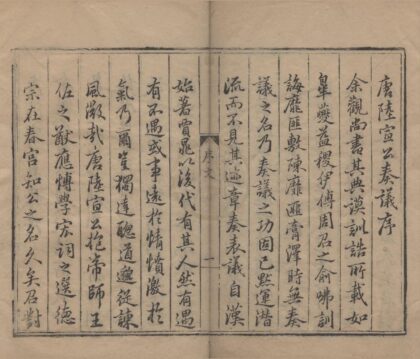 唐陸宣公奏議序
余觀尚書其典謨訓誥所載如
皐夔益稷伊傅周召之俞咈訓
誨靡匪敷陳靡匪膏澤時無奏
議之名乃奏議之功固已黙運潛
流而不見其迹章奏表議自漢
序文
一
始著賈鼂以後代有其人然有遇
有不遇或事遠於情憤激於
氣乃爾豈獨達聰道邈從諫
風微哉唐陸宣公抱帝師王
佐之猷應博學宏詞之選德
宗在春宮知公之名久矣召對